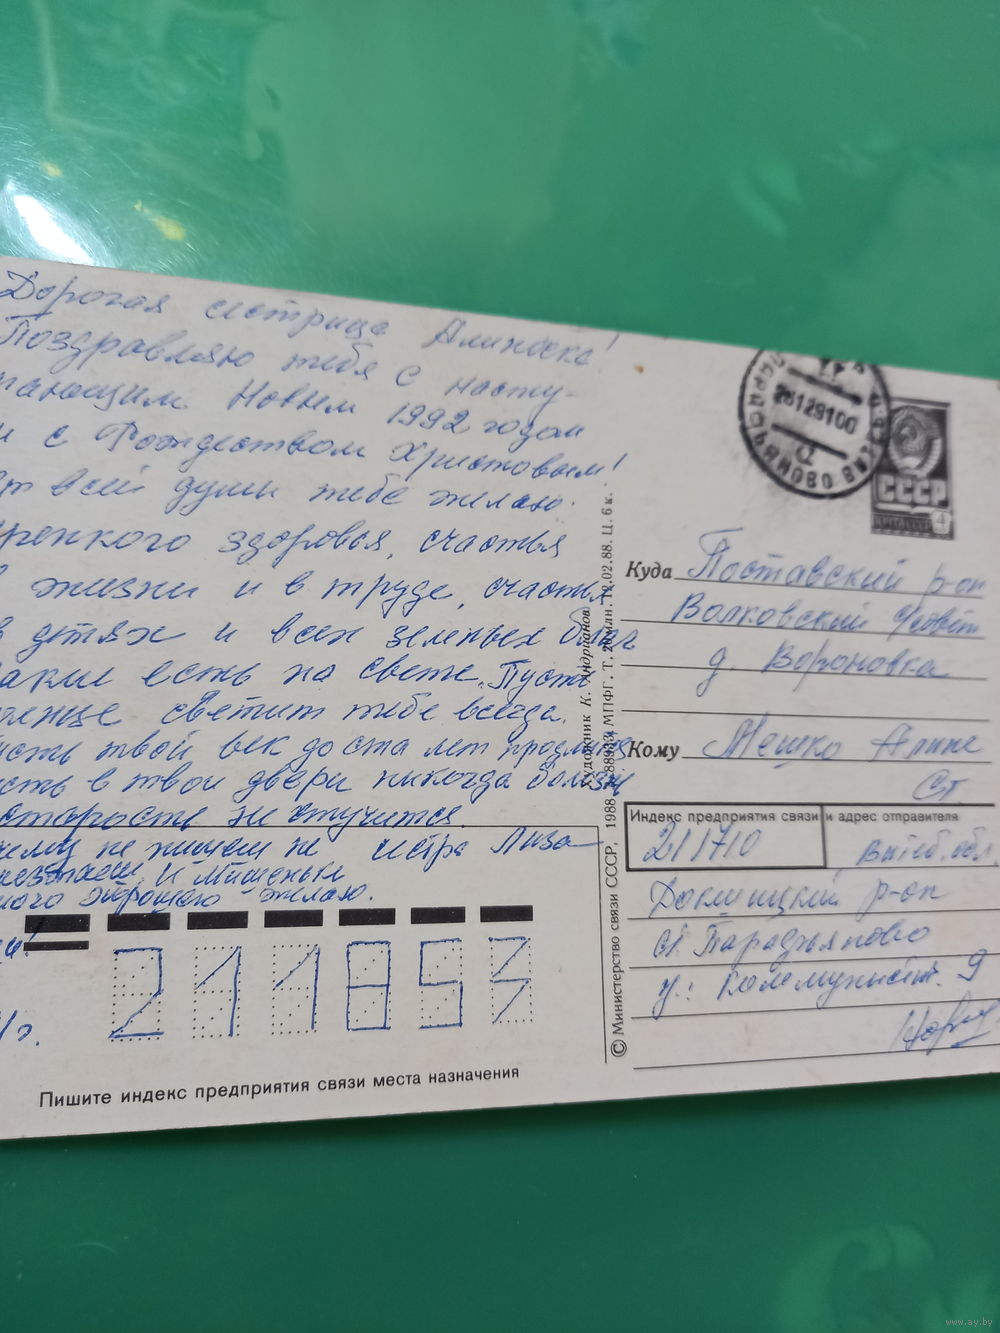 Дорогая сестрица Алиночка!
Поздравляю тебя с насту-
пающим Новым 1992 годом
и с Рождеством Христовым!
От всей души тебе желаю
крепкого здоровья, счастья
в жизни и в труде, счастья
в детях и всех земных благ
какие есть на свете. Пусть
солнце светит тебе всегда.
Пусть твой век до ста лет
Пусть в твои двери никогда болезнь
старость не стучится.
чему не пишем не сестра Лиза
не знаем. И Мишеньки
много хорошего желаю.
211853
Пишите индекс предприятия связи места назначения
© Министерство связи СССР, 1988
Художник К. Андрианов
МПФГ. Т. 20 млн. 12.02.88. Ц. 6 к.
28129100
СССР
4
Куда Поставский р-он
Волковский
д. Вороновка
Кому Мешко Алине
Ст.
Индекс предприятия связи и адрес отправителя
211710 Витеб. обл.
Докшицкий р-он
ст. Парафьяново
у: Коммунист. 9
www.ay.by